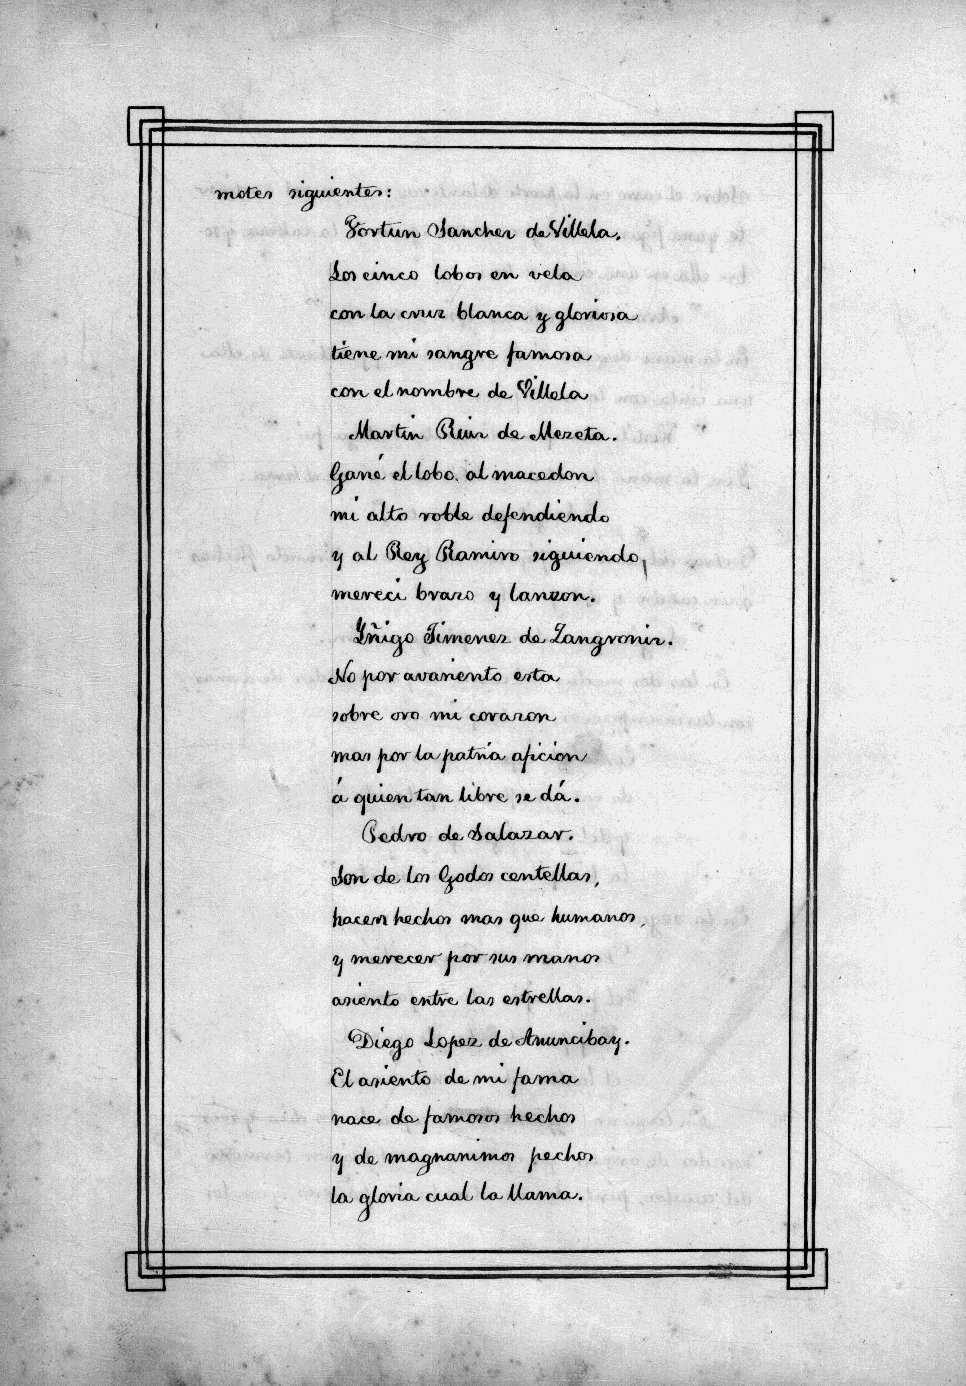 motes siguientes:
Fortun Sanchez de Villela.
Los cinco lobos en vela
con la cruz blanca y gloriosa
tiene mi sangre famosa
con el nombre de Villela
Martin Ruiz de Mezeta.
Gané el lobo al macedon
mi alto roble defendiendo
y al Rey Ramiro siguiendo,
mereci brazo y lanzon.
Yñigo Jimenez de Zangroniz.
No por avariento esta
sobre oro mi corazon
mas por la patria aficion
á quien tan libre se dá.
Pedro de Salazar.
Son de los Godos centellas,
hacen hechos mas que humanos,
y merecer por sus manos
asiento entre las estrellas.
Diego Lopez de Anuncibay.
El asiento de mi fama
nace de famosos hechos
y de magnanimos pechos
la gloria cual la llama.